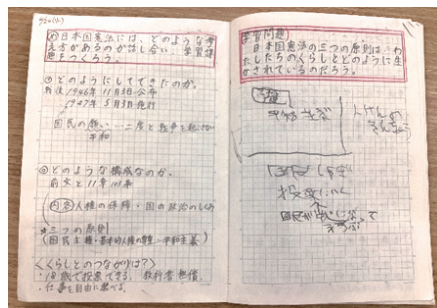 9/20(水)
め 日本国憲法には、どのような考
え方があるのか話し合い、学習問
題をつくろう。
どのようにしてできたのか。
戦後 1946年 11月3日公布
1947年 5月3日施行
国民の願い…二度と戦争を起こさない
平和
どのような構成なのか。
前文と11章103条
内容 人権の保障・国の政治のしくみ
三つの原則
(国民主権・基本的人権の尊重・平和主義)
〈くらしとのつながりは?〉
・18歳で投票できる。教科書無償。
・仕事を自由に選べる。
学習問題
日本国憲法の三つの原則は、わ
たしたちのくらしとどのように生
かされているのだろう。
予想
人けんの
そんちょう
国民が